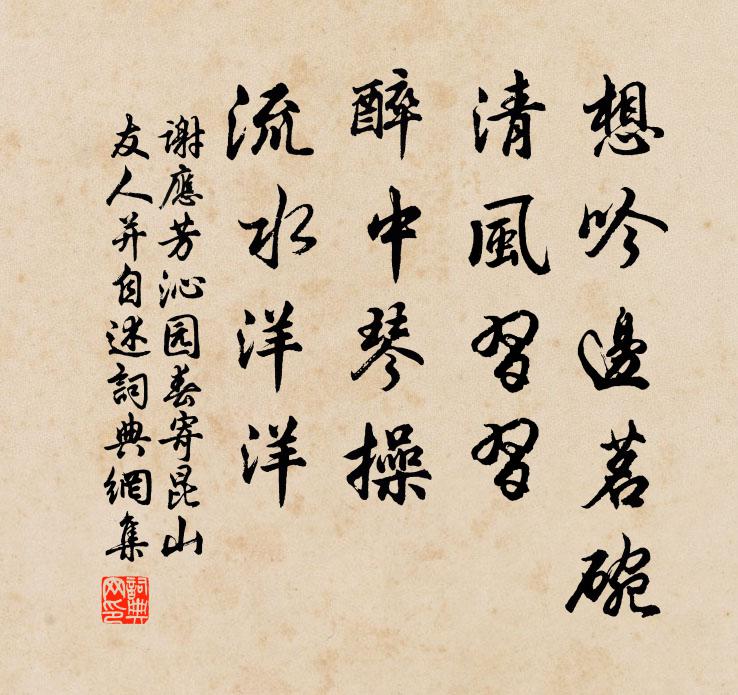 想吟邊茗碗
清風習習
醉中琴操
流水洋洋
謝應芳沁园春寄昆山
友人并自述詞典網集
詞典
网印